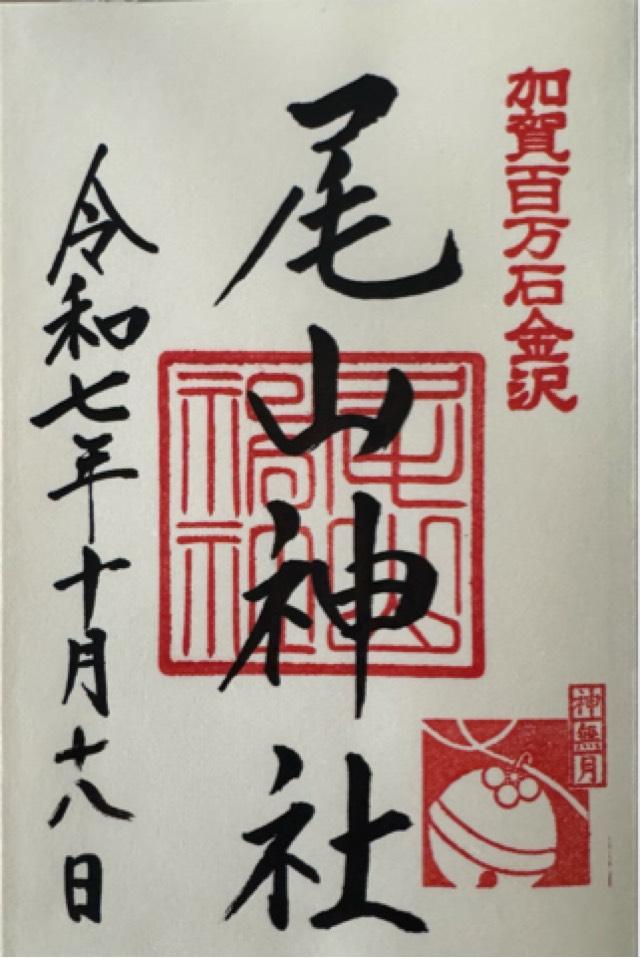 加賀百万石金沢
尾山神社
神無月
令和七年十月十八日